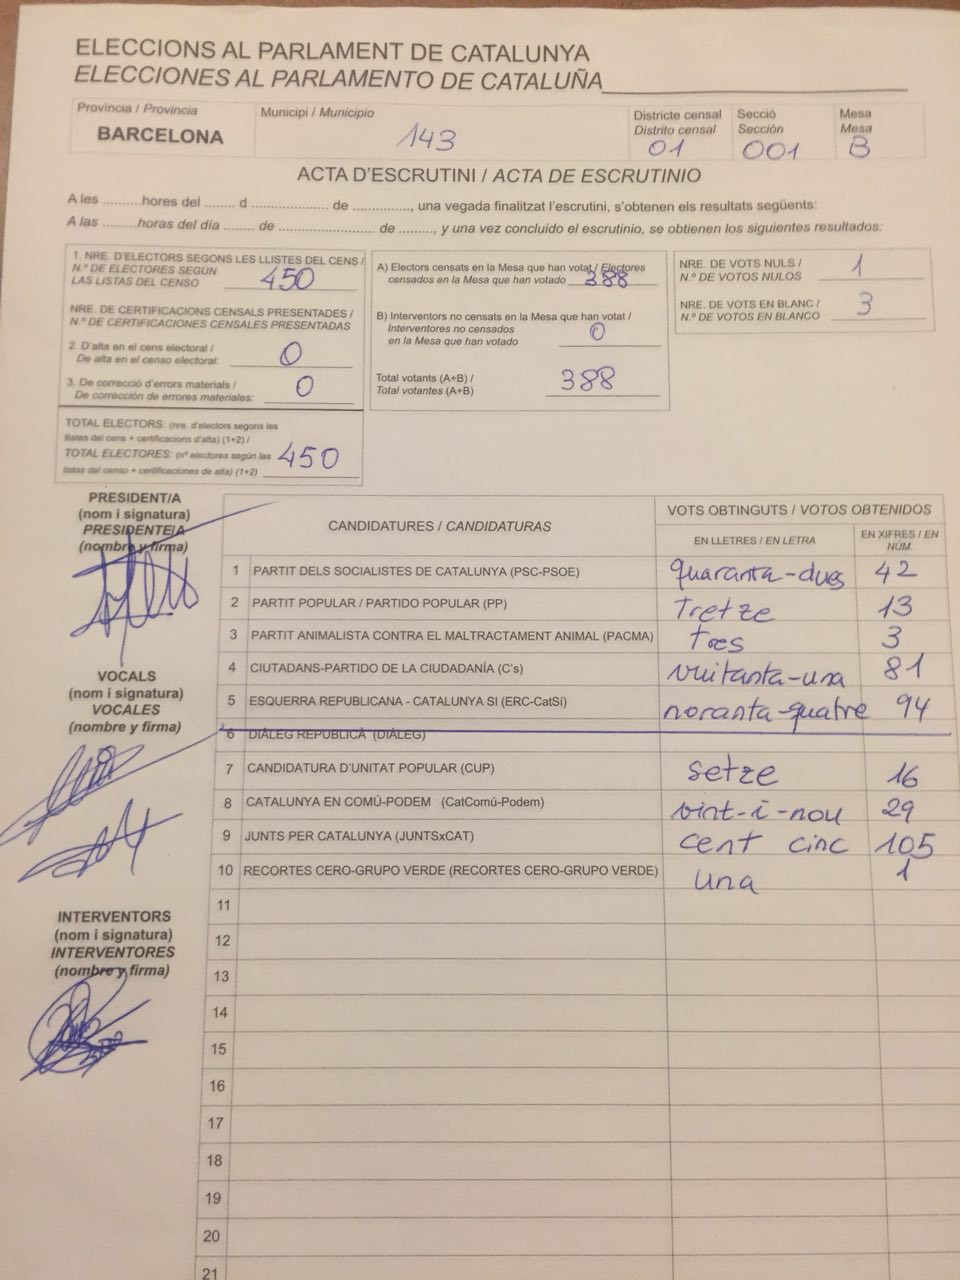 ELECCIONS AL PARLAMENT DE CATALUNYA
ELECCIONES AL PARLAMENTO DE CATALUÑA
Província / Provincia
BARCELONA
Municipi / Municipio
143
Districte censal
Distrito censal
01
Secció
Sección
001
Mesa
Mesa
B
ACTA D'ESCRUTINI / ACTA DE ESCRUTINIO
A les .........hores del ....... d .................. de .............., una vegada finalitzat l'escrutini, s'obtenen els resultats següents:
A las .........horas del día ....... de ....................... de ........, y una vez concluido el escrutinio, se obtienen los siguientes resultados:
1. NRE. D'ELECTORS SEGONS LES LLISTES DEL CENS /
N.º DE ELECTORES SEGÚN
LAS LISTAS DEL CENSO 450
NRE. DE CERTIFICACIONS CENSALS PRESENTADES /
N.º DE CERTIFICACIONES CENSALES PRESENTADAS
2. D'alta en el cens electoral /
De alta en el censo electoral: 0
3. De correcció d'errors materials /
De corrección de errores materiales: 0
TOTAL ELECTORS: (nre. d'electors segons les
llistes del cens + certificacions d'alta) (1+2) /
TOTAL ELECTORES: (nº electores según las
listas del censo + certificaciones de alta) (1+2) 450
A) Electors censats en la Mesa que han votat / Electores
censados en la Mesa que han votado 388
B) Interventors no censats en la Mesa que han votat /
Interventores no censados
en la Mesa que han votado 0
Total votants (A+B) /
Total votantes (A+B) 388
NRE. DE VOTS NULS /
N.º DE VOTOS NULOS 1
NRE. DE VOTS EN BLANC /
N.º DE VOTOS EN BLANCO 3
PRESIDENT/A
(nom i signatura)
PRESIDENTE/A
(nombre y firma)
VOCALS
(nom i signatura)
VOCALES
(nombre y firma)
INTERVENTORS
(nom i signatura)
INTERVENTORES
(nombre y firma)
CANDIDATURES / CANDIDATURAS
VOTS OBTINGUTS / VOTOS OBTENIDOS
EN LLETRES / EN LETRA
EN XIFRES / EN
NÚM.
1 PARTIT DELS SOCIALISTES DE CATALUNYA (PSC-PSOE) quaranta-dues 42
2 PARTIT POPULAR / PARTIDO POPULAR (PP) Tretze 13
3 PARTIT ANIMALISTA CONTRA EL MALTRACTAMENT ANIMAL (PACMA) tres 3
4 CIUTADANS-PARTIDO DE LA CIUDADANÍA (C's) vuitanta-una 81
5 ESQUERRA REPUBLICANA - CATALUNYA SI (ERC-CatSí) noranta-quatre 94
6 DIÀLEG REPUBLICÀ (DIÀLEG)
7 CANDIDATURA D'UNITAT POPULAR (CUP) setze 16
8 CATALUNYA EN COMÚ-PODEM (CatComú-Podem) vint-i-nou 29
9 JUNTS PER CATALUNYA (JUNTSxCAT) cent cinc 105
10 RECORTES CERO-GRUPO VERDE (RECORTES CERO-GRUPO VERDE) una 1
11
12
13
14
15
16
17
18
19
20
21